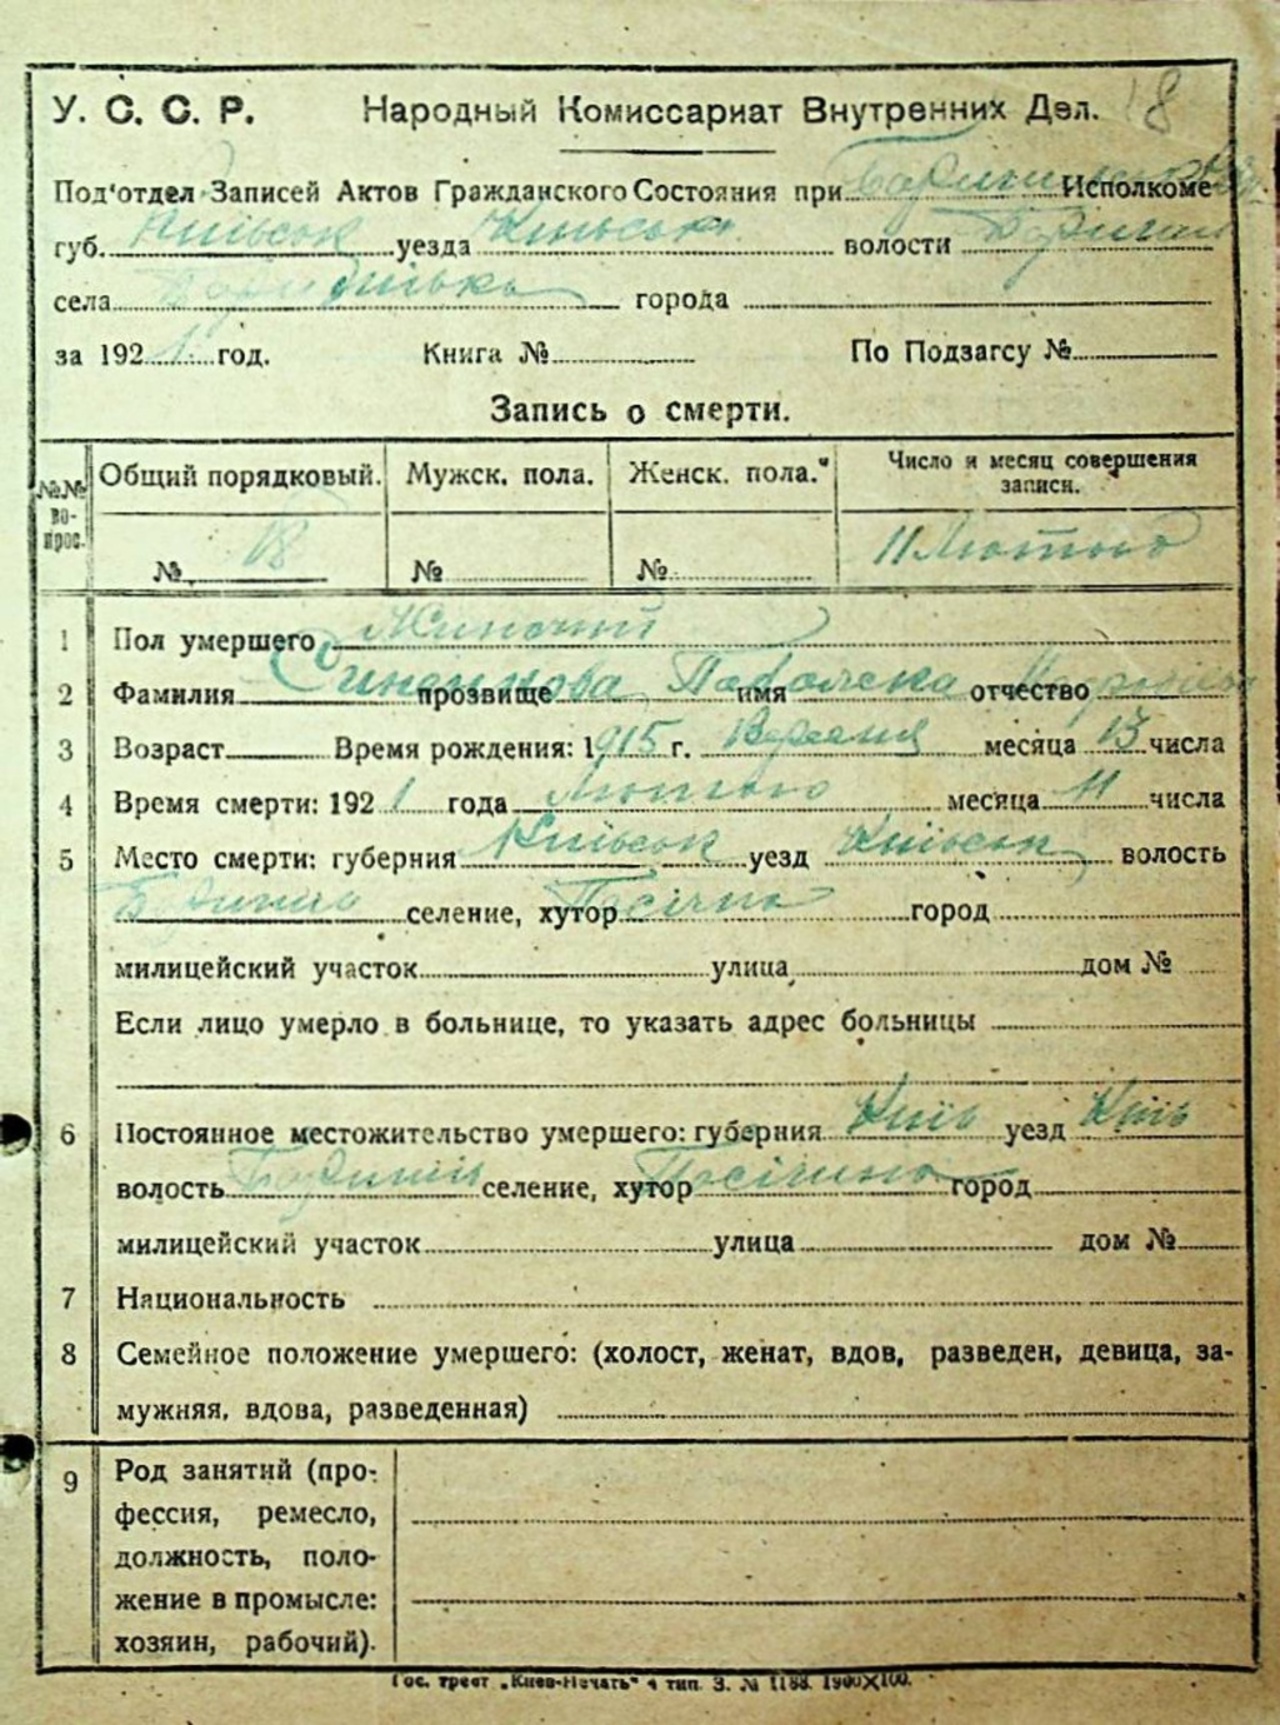 У. С. С. Р. Народный Комиссариат Внутренних Дел. 18
Под'отдел Записей Актов Гражданского Состояния при Исполкоме
губ. Київськ уезда Київськ волости
села города
за 1921 год. Книга № По Подзагсу №
Запись о смерти.
№№ вопрос. Общий порядковый. Мужск. пола. Женск. пола. Число и месяц совершения записи.
№ 18 № № 11 Лютого
1 Пол умершего Жиночий
2 Фамилия прозвище имя отчество
3 Возраст Время рождения: 1915 г. Вересня месяца 13 числа
4 Время смерти: 1921 года Лютого месяца 11 числа
5 Место смерти: губерния Київськ уезд Київськ волость
селение, хутор город
милицейский участок улица дом №
Если лицо умерло в больнице, то указать адрес больницы
6 Постоянное местожительство умершего: губерния Київ уезд Київ
волость селение, хутор город
милицейский участок улица дом №
7 Национальность
8 Семейное положение умершего: (холост, женат, вдов, разведен, девица, за-
мужняя, вдова, разведенная)
9 Род занятий (про-
фессия, ремесло,
должность, поло-
жение в промысле:
хозяин, рабочий).
Гос. трест „Киев-Печать" 4 тип. З. № 1188. 1900×100.